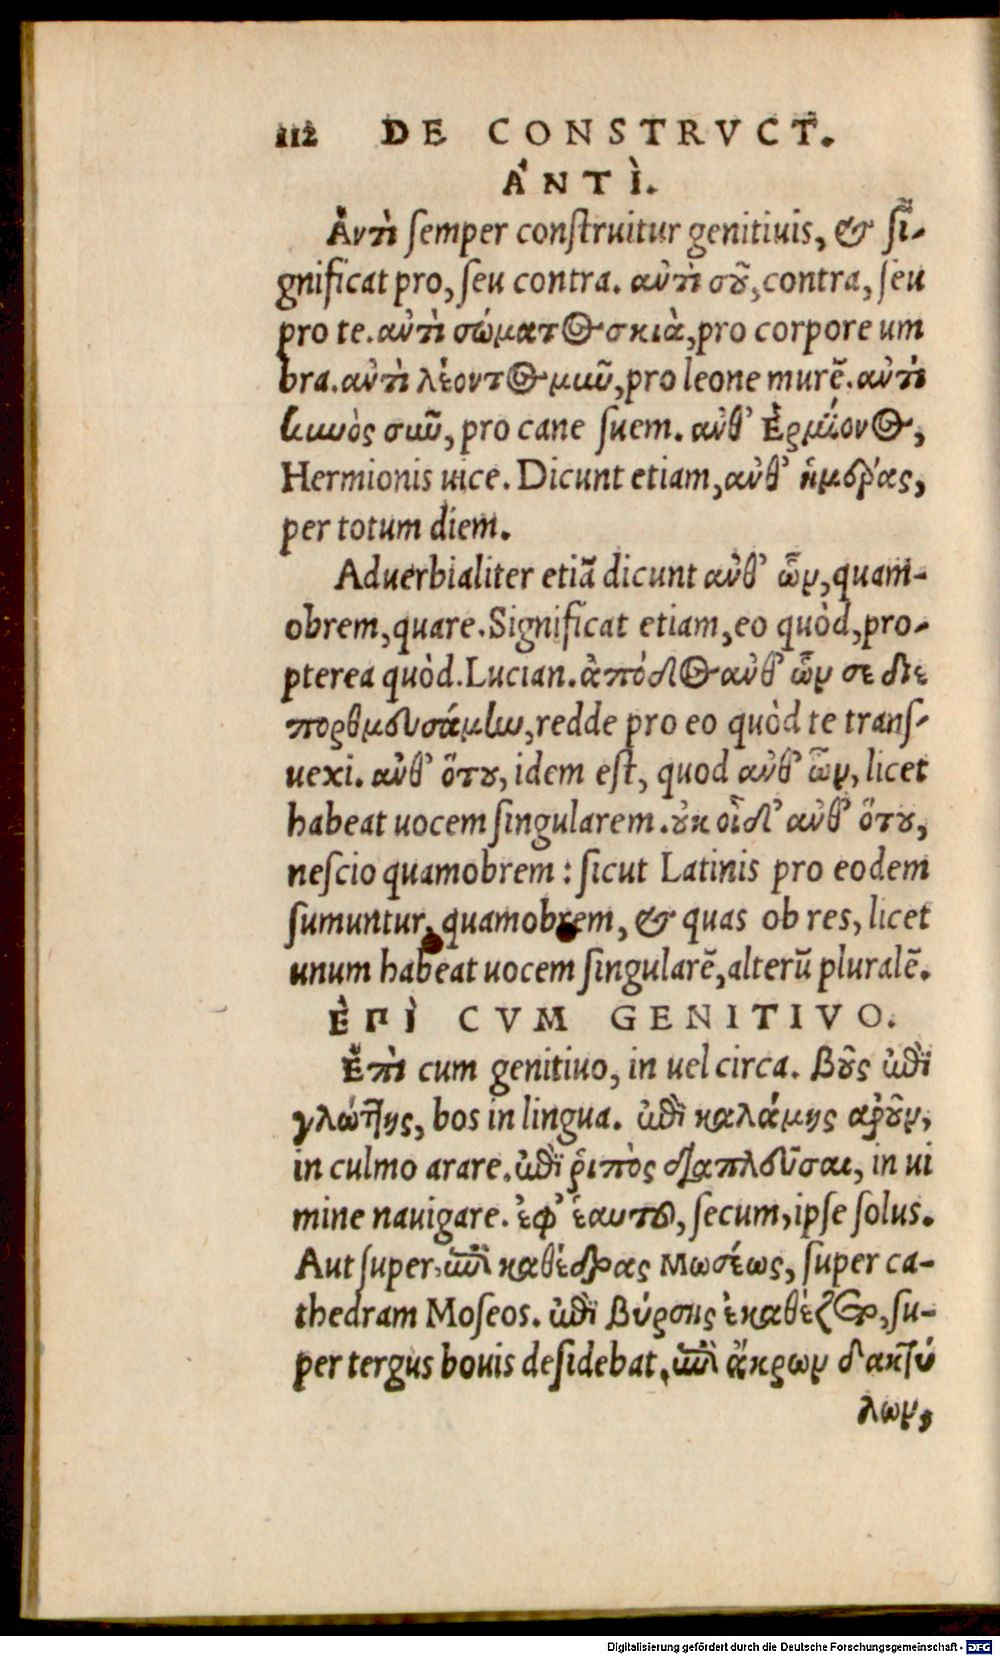 112 DE CONSTRVCT.
ἈΝΤῚ.
Ἀντὶ ſemper conſtruitur genitiuis, & ſi-
gnificat pro, ſeu contra. ἀντὶ σοῦ, contra, ſeu
pro te. ἀντὶ σώματος σκιὰ, pro corpore um
bra. ἀντὶ λέοντος μῦν, pro leone murē. ἀντὶ
κυνὸς σῦν, pro cane ſuem. ἀνθ' Ἑρμίονος,
Hermionis uice. Dicunt etiam, ἀνθ' ἡμέρας,
per totum diem.
Aduerbialiter etiã dicunt ἀνθ' ὧν, quam-
obrem, quare. Significat etiam, eo quòd, pro-
pterea quòd. Lucian. ἀπόδος ἀνθ' ὧν σε διε
πορθμευσάμην, redde pro eo quòd te tranſ-
uexi. ἀνθ' ὅτου, idem eſt, quod ἀνθ' ὧν, licet
habeat uocem ſingularem. οὐκ οἶδ' ἀνθ' ὅτου,
neſcio quamobrem: ſicut Latinis pro eodem
ſumuntur, quamobrem, & quas ob res, licet
unum habeat uocem ſingularē, alterū pluralē.
ἘΠῚ CVM GENITIVO.
Ἐπὶ cum genitiuo, in uel circa. βοῦς ἐπὶ
γλώττης, bos in lingua. ἐπὶ καλάμης ἀροῦν,
in culmo arare. ἐπὶ ῥιπὸς διαπλεῦσαι, in ui
mine nauigare. ἐφ' ἑαυτοῦ, ſecum, ipſe ſolus.
Aut ſuper, ἐπὶ καθέδρας Μωσέως, ſuper ca-
thedram Moſeos. ἐπὶ βύρσης ἐκαθέζετο, ſu-
per tergus bouis deſidebat, ἐπὶ ἄκρων δακτύ
λων,
Digitalisierung gefördert durch die Deutsche Forschungsgemeinschaft - DFG